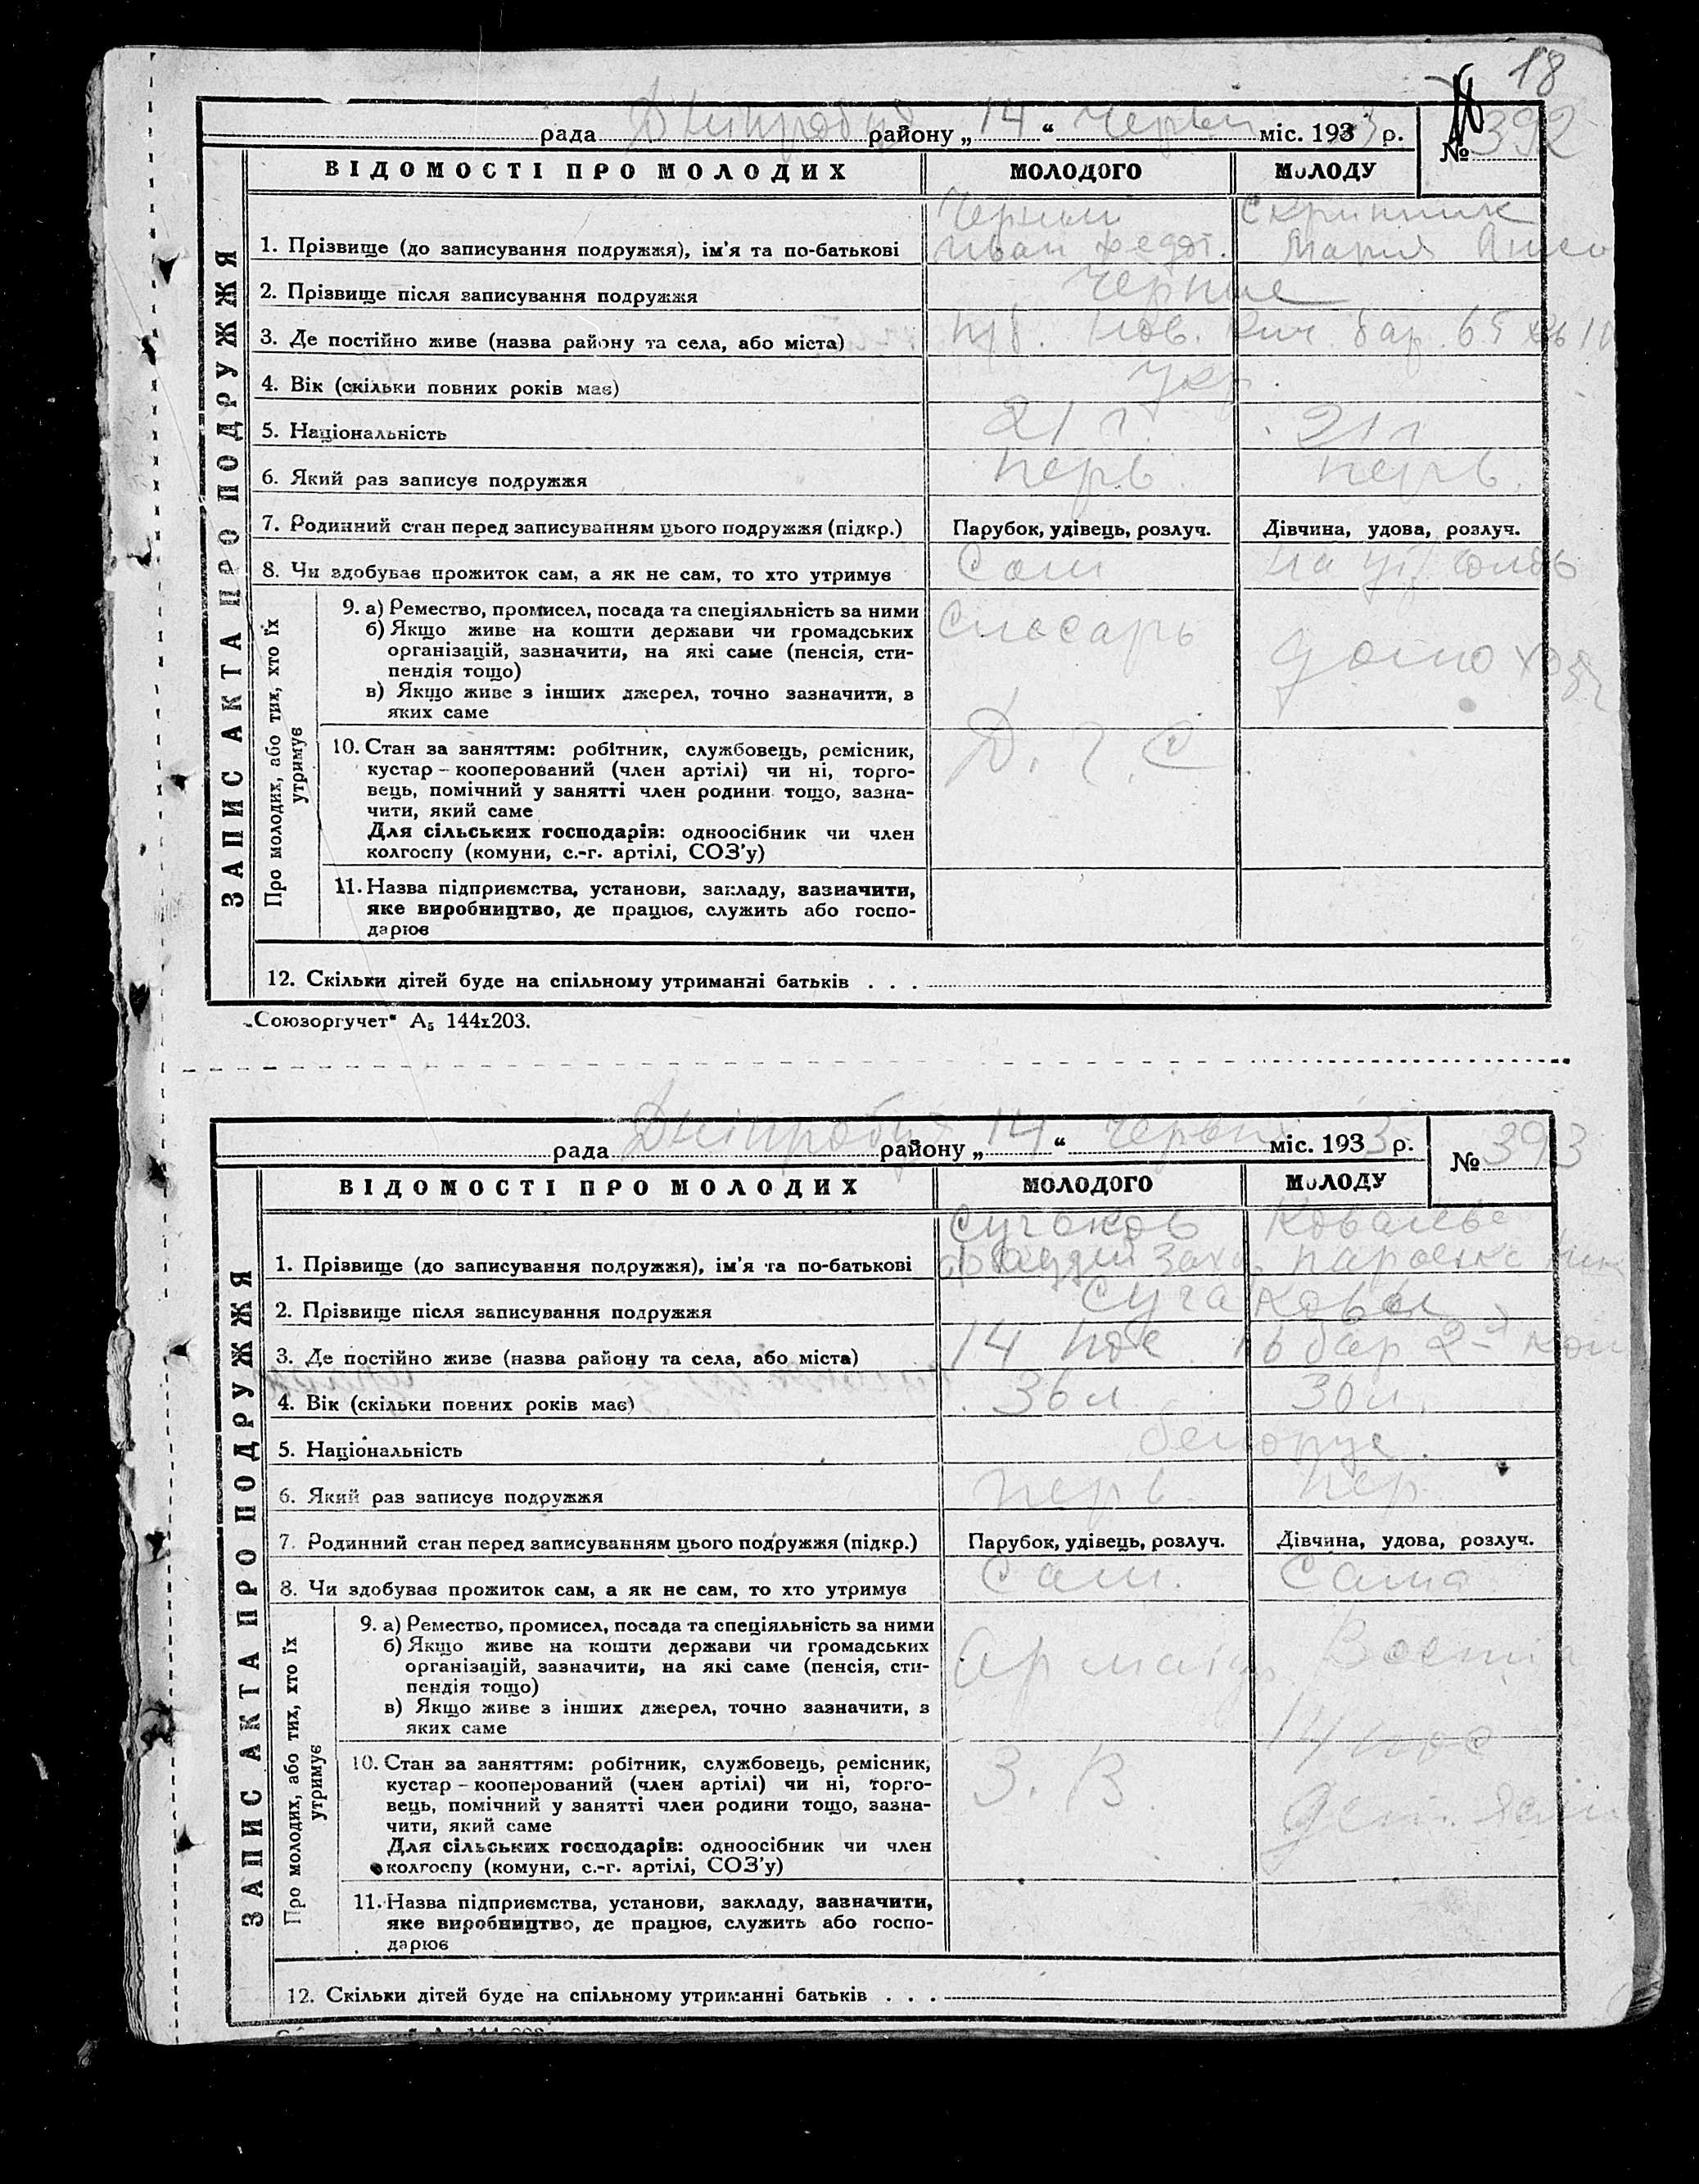 18
рада Дніпробуд району „ 14 “ Червня міс. 193 3 р.
№ 392
ВІДОМОСТІ ПРО МОЛОДИХ
МОЛОДОГО
МОЛОДУ
ЗАПИС АКТА ПРО ПОДРУЖЖЯ
1. Прізвище (до записування подружжя), ім’я та по-батькові
Иван Федот.
Скрипник
Мария
2. Прізвище після записування подружжя
Черные
3. Де постійно живе (назва району та села, або міста)
Кич. бар. 65
4. Вік (скільки повних років має)
укр.
5. Національність
21 г.
21 г
6. Який раз записує подружжя
перв.
перв.
7. Родинний стан перед записуванням цього подружжя (підкр.)
Парубок, удівець, розлуч.
Дівчина, удова, розлуч.
8. Чи здобував прожиток сам, а як не сам, то хто утримує
Сам
Про молодих, або тих, хто їх утримує
9. а) Ремество, промисел, посада та спеціяльність за ними
б) Якщо живе на кошти держави чи громадських
організацій, зазначити, на які саме (пенсія, сти-
пендія тощо)
в) Якщо живе з інших джерел, точно зазначити, з
яких саме
Слесарь
домохоз
10. Стан за заняттям: робітник, службовець, ремісник,
кустар – кооперований (член артілі) чи ні, торго-
вець, помічний у занятті член родини тощо, зазна-
чити, який саме
Для сільських господарів: одноосібник чи член
колгоспу (комуни, с.-г. артілі, СОЗ’у)
Д. Г. С
11. Назва підприємства, установи, закладу, зазначити,
яке виробництво, де працює, служить або госпо-
дарює
12. Скільки дітей буде на спільному утриманні батьків . . .
„Союзоргучет“ А₅ 144х203.
рада Дніпробуд району „ 14 “ Червня міс. 193 3 р.
№ 393
ВІДОМОСТІ ПРО МОЛОДИХ
МОЛОДОГО
МОЛОДУ
ЗАПИС АКТА ПРО ПОДРУЖЖЯ
1. Прізвище (до записування подружжя), ім’я та по-батькові
Сучаков
Ковалева
2. Прізвище після записування подружжя
Сучаковы
3. Де постійно живе (назва району та села, або міста)
14 пос. 16 бар 2-й ком
4. Вік (скільки повних років має)
36 л
30 л.
5. Національність
белорус.
6. Який раз записує подружжя
перв
пер
7. Родинний стан перед записуванням цього подружжя (підкр.)
Парубок, удівець, розлуч.
Дівчина, удова, розлуч.
8. Чи здобував прожиток сам, а як не сам, то хто утримує
Сам.
Сама
Про молодих, або тих, хто їх утримує
9. а) Ремество, промисел, посада та спеціяльність за ними
б) Якщо живе на кошти держави чи громадських
організацій, зазначити, на які саме (пенсія, сти-
пендія тощо)
в) Якщо живе з інших джерел, точно зазначити, з
яких саме
14 пос
10. Стан за заняттям: робітник, службовець, ремісник,
кустар – кооперований (член артілі) чи ні, торго-
вець, помічний у занятті член родини тощо, зазна-
чити, який саме
Для сільських господарів: одноосібник чи член
колгоспу (комуни, с.-г. артілі, СОЗ’у)
З. В
11. Назва підприємства, установи, закладу, зазначити,
яке виробництво, де працює, служить або госпо-
дарює
12. Скільки дітей буде на спільному утриманні батьків . . .